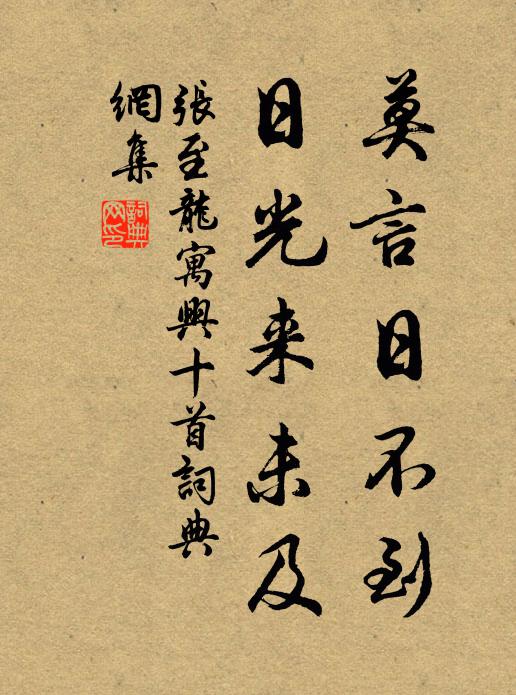 莫言日不到
日光来未及
張至龍寓興十首詞典
網集
詞典
网印